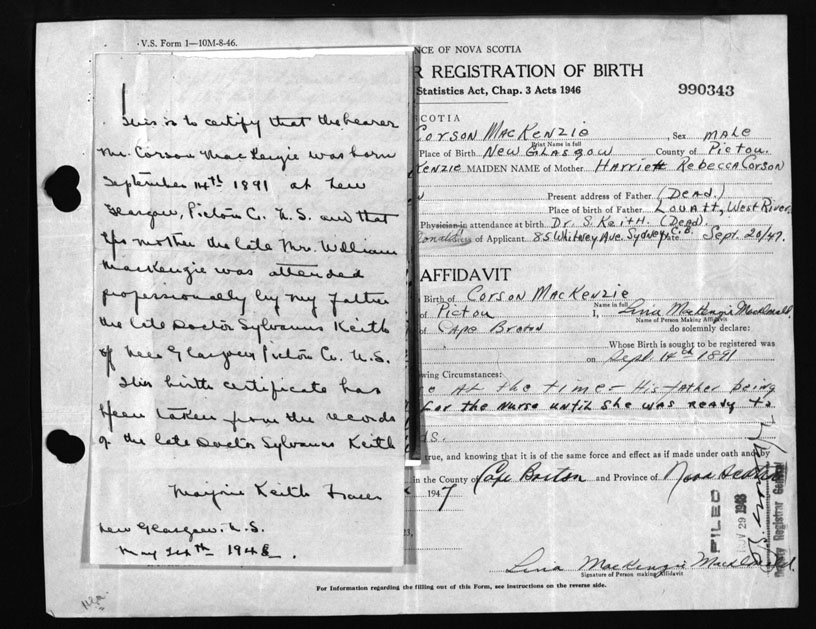 V.S. Form 1—10M-8-46.
This is to certify that the bearer
Mr. Corson MacKenzie was born
September 14th 1891 at New
Glasgow, Pictou C. N.S. and that
his mother the late Mrs. William
MacKenzie was attended
professionally by my father
the late Doctor Sylvanus Keith
of New Glasgow Pictou Co. N.S.
This birth certificate has
been taken from the records
of the late Doctor Sylvanus Keith
Marjorie Keith Fraser
New Glasgow. N.S.
May 24th 1948.
NCE OF NOVA SCOTIA
R REGISTRATION OF BIRTH
Statistics Act, Chap. 3 Acts 1946
990343
SCOTIA
Corson MacKenzie, Sex male
Print Name in full
Place of Birth New Glasgow County of Pictou
KENZIE MAIDEN NAME of Mother Harriett Rebecca Corson
Present address of Father (Dead.)
Place of birth of Father Lovatt, West River
Physician in attendance at birth Dr. S. Keith. (Dead).
of Applicant 85 Whitney Ave. Sydney C.B. Date Sept. 20/47.
AFFIDAVIT
Birth of Corson MacKenzie
Name in full
of Pictou I, Lina MacKenzie MacDonald
Name of Person Making Affidavit
of Cape Breton do solemnly declare:
Whose Birth is sought to be registered was
on Sept. 14th 1891
wing Circumstances:
e at the time - His father being
for the nurse until she was ready to
ds.
true, and knowing that it is of the same force and effect as if made under oath and by
in the County of Cape Breton and Province of Nova Scotia
1947
FILED
NOV 29 1948
Deputy Registrar General
Lina MacKenzie MacDonald.
Signature of Person making Affidavit
For Information regarding the filling out of this Form, see instructions on the reverse side.